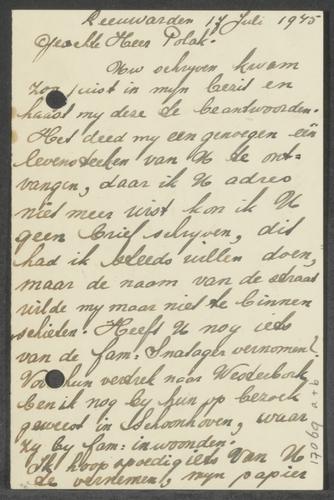 Leeuwarden 17 Juli 1945
Geachte Heer Polak.
Uw schrijven kwam
zoo juist in mijn bezit en
haast my deze te beantwoorden.
Het deed my een genoegen een
levensteeken van U te ont=
vangen, daar ik U adres
niet meer wist kon ik U
geen brief schrijven, dit
had ik steeds willen doen,
maar de naam van de straat
wilde my maar niet te binnen
schieten. Heeft U nog iets
van de fam: Snatager vernomen?
Voor hun vertrek naar Westerbork
ben ik nog by hun op bezoek
geweest in Schoonhoven, waar
zy by fam: inwoonden.
Ik hoop spoedig iets van U
te vernemen, mijn papier
17069 a+b